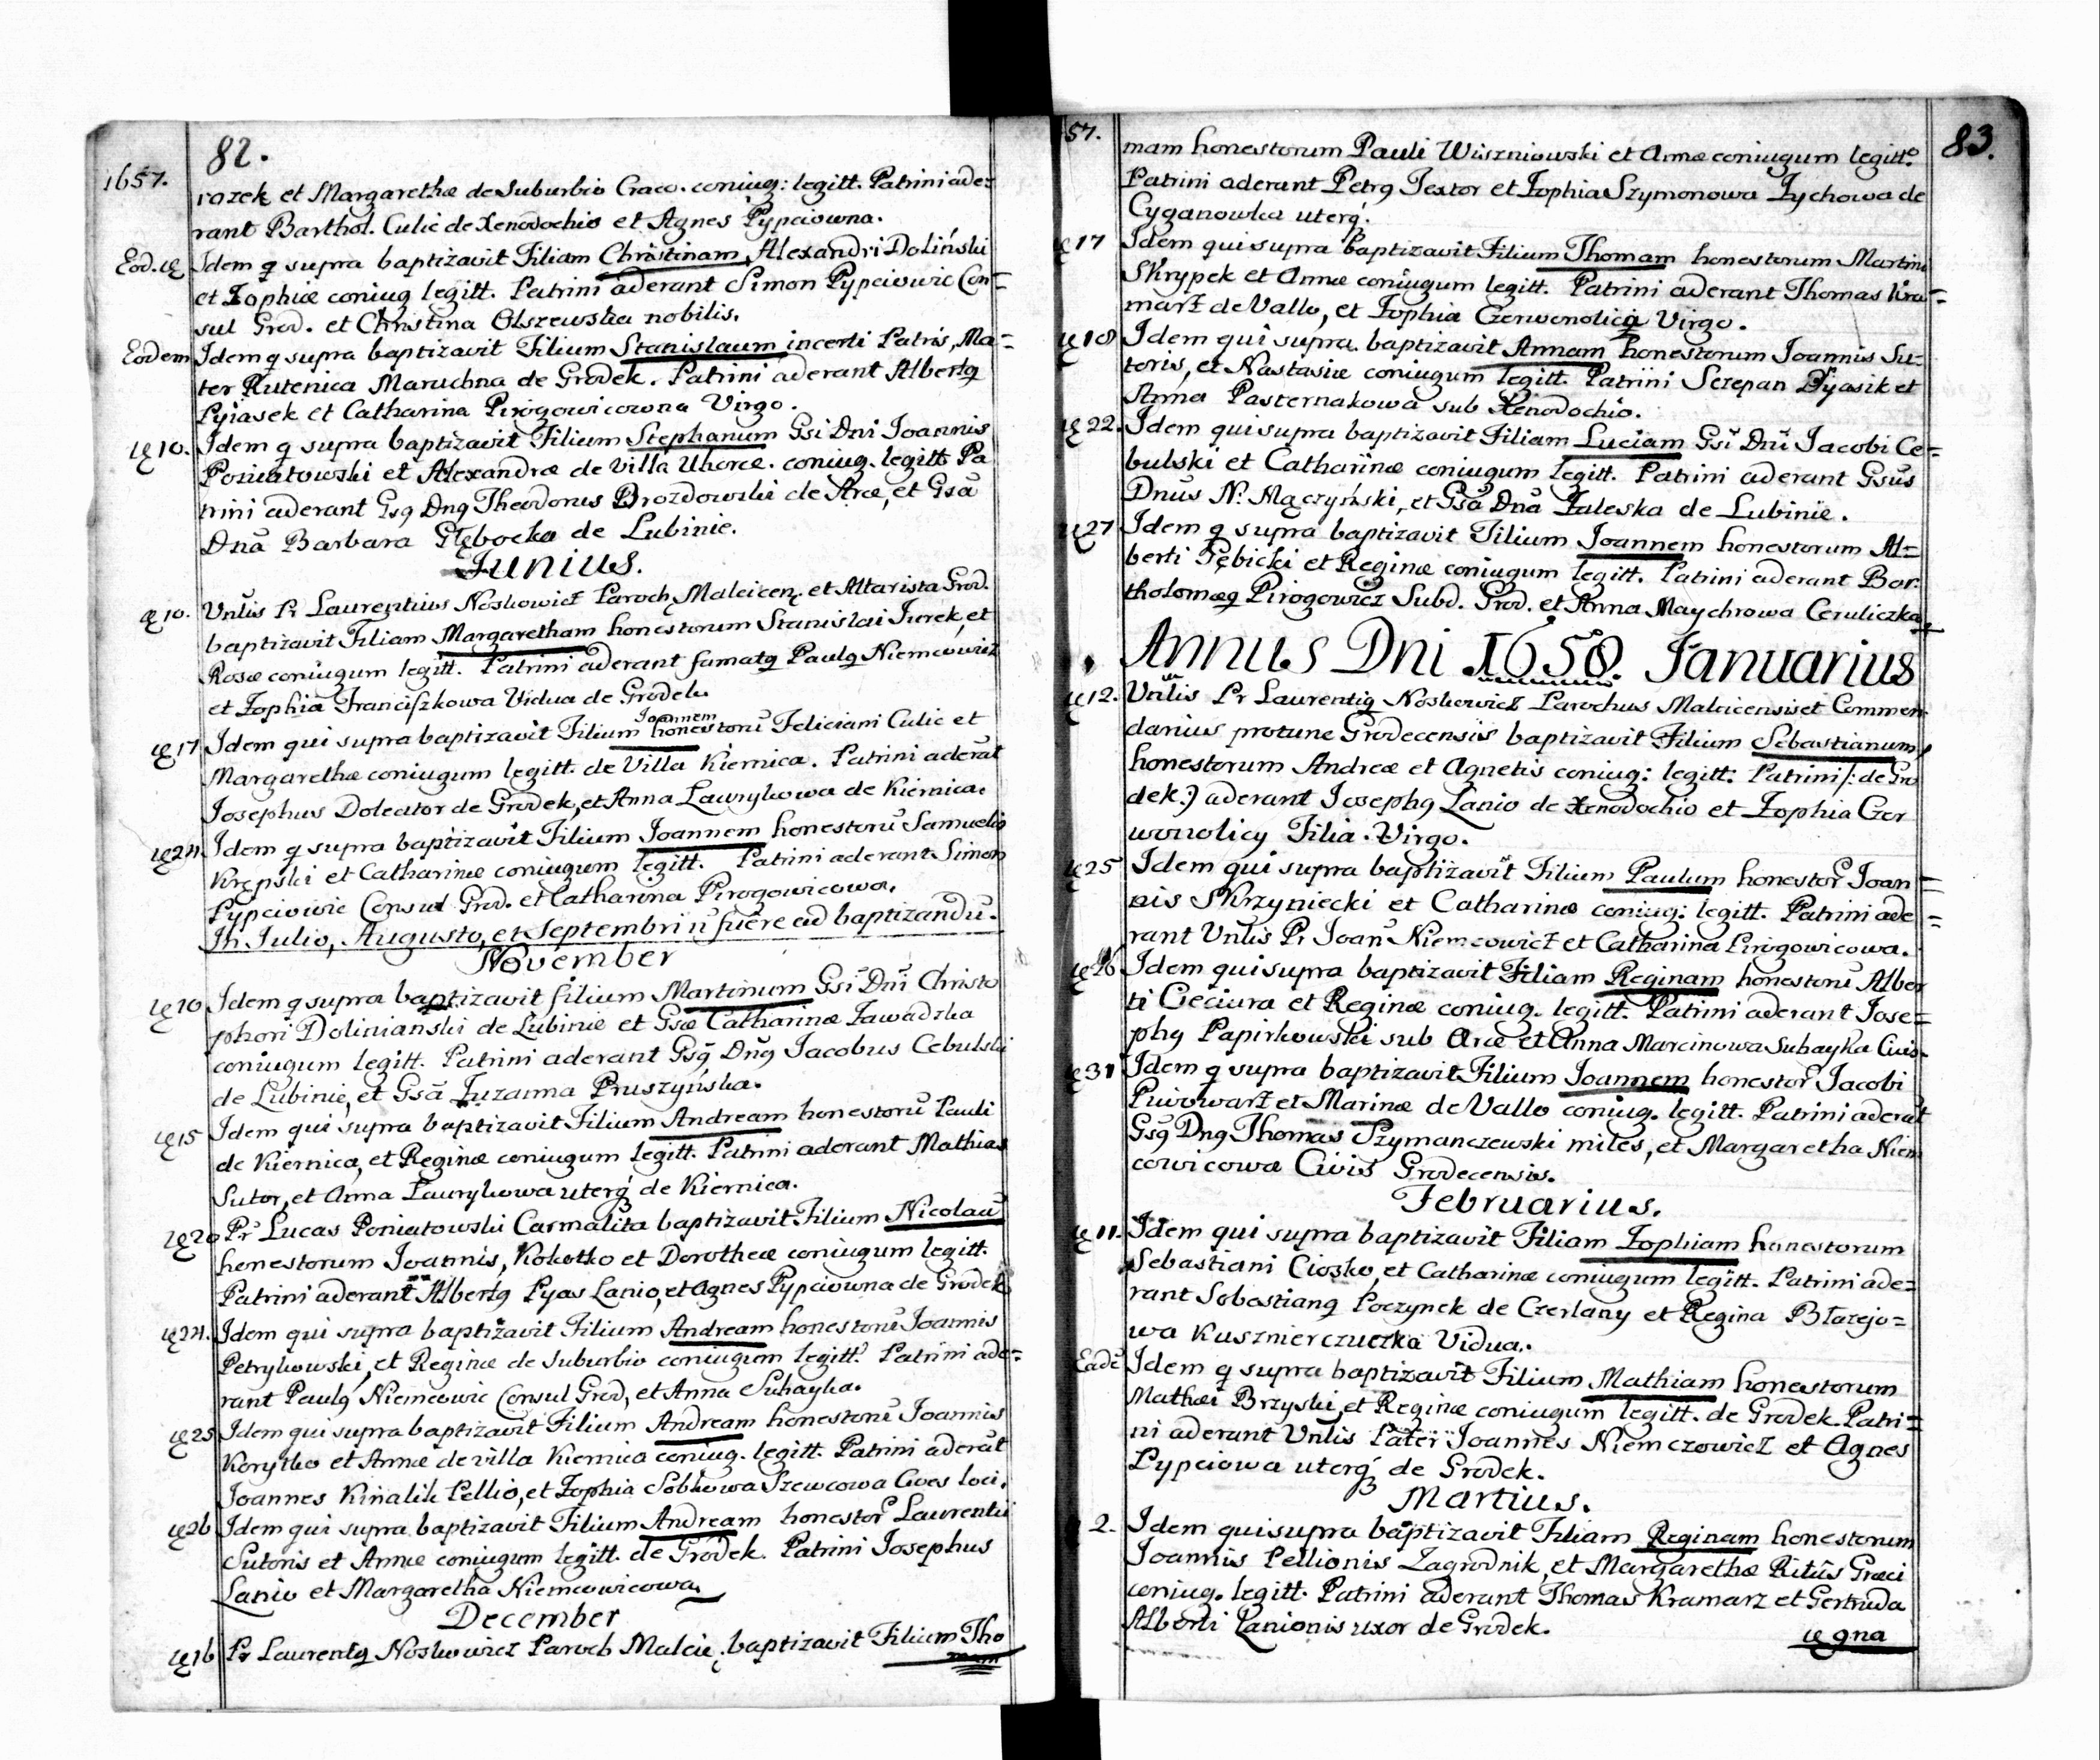 82.
1657.
razek et Margarethæ de Suburbio Craco. coniug: legitt. Patrini ade=
rant Barthol. Culic de Xenodochio et Agnes Pypciowna.
Eod. Idem q supra baptizavit Filiam Christinam Alexandri Doliński
et Zophiæ coniug legitt. Patrini aderant Simon Pypciowic Con=
sul Grod. et Christina Olszewska nobilis.
Eodem Idem q supra baptizavit Filium Stanislaum incerti Patris, Ma=
ter Rutenica Maruchna de Grodek. Patrini aderant Albertq
Pyiasek et Catharina Pirogowicowna Virgo.
10. Idem q supra baptizavit Filium Stephanum Gsi Dni Joannis
Poniatowski et Alexandræ de villa Uhorce. coniug. legitt Pa
trini aderant Gsq Dnq Theodorus Brozdowski de Arce, et Gsa
Dna Barbara Głębocka de Lubinie.
Junius.
10. Vnlis Pr Laurentius Noskowicz Paroch Malcicen. et Altarista Grod.
baptizavit Filiam Margaretham honestorum Stanislai Jurek, et
Rosæ coniugum legitt. Patrini aderant famatq Paulq Niemcowicz
et Zophia Franciszkowa Vidua de Grodek.
Joannem
17 Idem qui supra baptizavit Filium honestorū Feliciani Culic et
Margarethæ coniugum legitt. de Villa Kiernica. Patrini aderāt
Josephus Doleator de Grodek, et Anna Lawrykowa de Kiernica.
24. Idem q supra baptizavit Filium Joannem honestorū Samuelis
Krępski et Catharinæ coniugum legitt. Patrini aderant Simon
Pypciowic Consul Grod. et Catharina Pirogowicowa.
In Julio, Augusto, et Septembri ñ fuêre ad baptizandū.
November
10 Idem q supra baptizavit filium Martinum Gsi Dni Christo
phori Dolinianski de Lubinie et Gsæ Catharinæ Zawadzka
coniugum legitt. Patrini aderant Gsq Dnq Jacobus Cebulski
de Lubinie, et Gsa Zuzanna Pruszyńska.
15 Idem qui supra baptizavit Filium Andream honestorū Pauli
de Kiernica, et Reginæ coniugum legitt. Patrini aderant Mathias
Sutor, et Anna Laurykowa uterq de Kiernica.
20 Pr Lucas Poniatowski Carmalita baptizavit Filium Nicolaū
honestorum Joannis, Kokotko et Dorotheæ coniugum legitt.
Patrini aderant Albertq Pyas Lanio, et Agnes Pypciowna de Grodek
24. Idem qui supra baptizavit Filium Andream honestorū Joannis
Petrykowski, et Reginæ de Suburbio coniugum legitt. Patrini ade=
rant Paulq Niemcowic Consul Grod, et Anna Suhayka.
25 Idem qui supra baptizavit Filium Andream honestorū Joannis
Korytko et Annæ de villa Kiernica coniug. legitt. Patrini aderāt
Joannes Kinalik Pellio, et Zophia Sobkowa Szewcowa Cives loci.
26 Idem qui supra baptizavit Filium Andream honestor Laurentii
Sutoris et Annæ coniugum legitt. de Grodek. Patrini Josephus
Lanio et Margaretha Niemcowicowa.
December
16 Pr Laurentq Noskowicz Paroch Malcic. baptizavit Filium Tho
mam
57.
83.
mam honestorum Pauli Wiszniowski et Annæ coniugum legitt.
Patrini aderant Petrq Textor et Zophia Szymonowa Zychowa de
Cyganowka uterq.
17 Idem qui supra baptizavit Filium Thomam honestorum Martini
Skrypek et Annæ coniugum legitt. Patrini aderant Thomas Kra=
marz de Vallo, et Zophia Czerwonolica Virgo.
18 Idem qui supra baptizavit Annam honestorum Joannis Su=
toris, et Nastasiæ coniugum legitt. Patrini Sczepan Dyasik et
Anna Pasternakowa sub Xenodochio.
22. Idem qui supra baptizavit Filiam Luciam Gsi Dni Jacobi Ce=
bulski et Catharinæ coniugum legitt. Patrini aderant Gsus
Dnus N. Mączyński, et Gsa Dna Zaleska de Lubinie.
27 Idem q supra baptizavit Filium Joannem honestorum Al=
berti Gębicki et Reginæ coniugum legitt. Patrini aderant Bar
tholomæq Pirogowicz Subd. Grod. et Anna Maychrowa Ceruliczka
Annus Dni 1658. Januarius
12. Vnlis Pr Laurentiq Noskowicz Parochus Malcicensis et Commen
darius protunc Grodecensis baptizavit Filium Sebastianum,
honestorum Andreæ et Agnetis coniug: legitt: Patrini /: de Gro
dek:) aderant Josephq Lanio de Xenodochio et Zophia Czer
wonolicy Filia. Virgo.
25 Idem qui supra baptizavit Filium Paulum honestor Joan=
nis Skrzyniecki et Catharinæ coniug: legitt. Patrini ade=
rant Vnlis Pr Joan Niemcowicz et Catharina Pirogowicowa.
26 Idem qui supra baptizavit Filiam Reginam honestorū Alber
ti Cieciura et Reginæ coniug. legitt. Patrini aderant Jose=
phq Papirkowski sub Arce et Anna Marcinowa Suhayka Civis.
31 Idem q supra baptizavit Filium Joannem honestor Jacobi
Piwowarz et Marinæ de Vallo coniug. legitt. Patrini aderāt
Gsq Dnq Thomas Szymanczewski miles, et Margaretha Niem
cowicowa Civis Grodecensis.
Februarius.
11. Idem qui supra baptizavit Filiam Zophiam honestorum
Sebastiani Ciosko, et Catharinæ coniugum legitt. Patrini ade=
rant Sebastianq Poczynek de Czerlany et Regina Błazejo=
wa Kusznierczuczka Vidua.
Eadē Idem q supra baptizavit Filium Mathiam honestorum
Mathæi Brzyski, et Reginæ coniugum legitt. de Grodek. Patri=
ni aderant Vnlis Pater Joannes Niemczowicz et Agnes
Pypciowa uterq de Grodek.
Martius.
2. Idem qui supra baptizavit Filiam Reginam honestorum
Joannis Pellionis Zagrodnik, et Margarethæ Ritûs Græci
coniug. legitt. Patrini aderant Thomas Kramarz et Gertruda
Alberti Lanionis uxor de Grodek.
9na